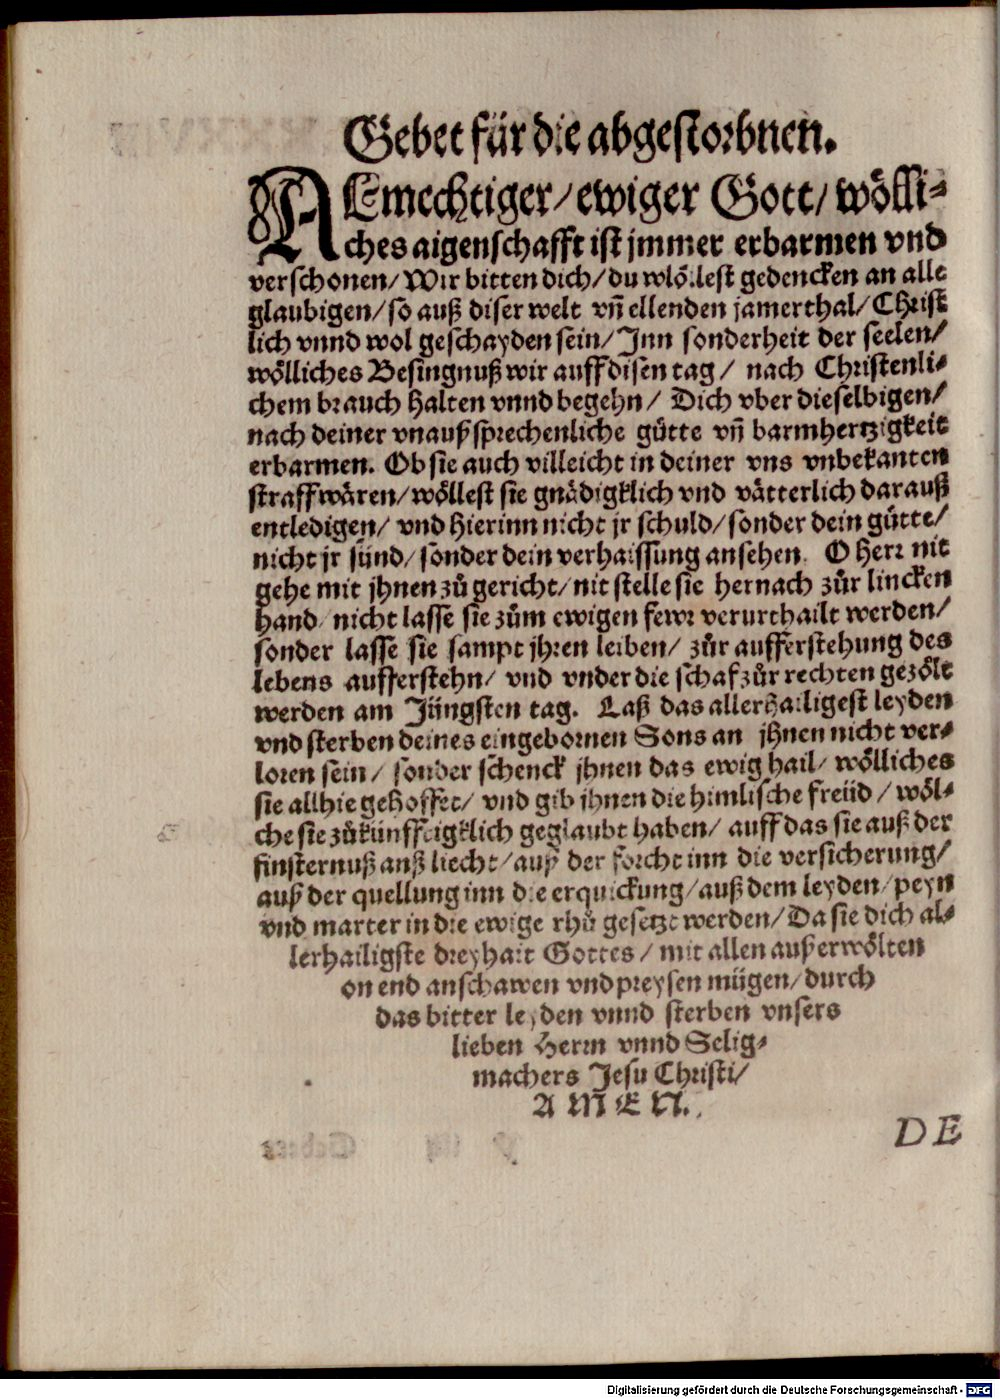 Gebet für die abgestorbnen.
ALmechtiger/ ewiger Gott/ wölli⸗
ches aigenschafft ist jmmer erbarmen vnd
verschonen/ Wir bitten dich/ du wlöllest gedencken an alle
glaubigen/ so auß diser welt vñ ellenden jamerthal/ Christ
lich vnnd wol geschayden sein/ Inn sonderheit der seelen/
wölliches Besingnuß wir auff disen tag/ nach Christenli⸗
chem brauch halten vnnd begehn/ Dich vber dieselbigen/
nach deiner vnaußsprechenliche gütte vñ barmhertzigkeit
erbarmen. Ob sie auch villeicht in deiner vns vnbekanten
straff wären/ wöllest sie gnädigklich vnd vätterlich darauß
entledigen/ vnd hierinn nicht jr schuld/ sonder dein gütte/
nicht jr sünd/ sonder dein verhaissung ansehen. O Herr nit
gehe mit jhnen zů gericht/ nit stelle sie hernach zůr lincken
hand/ nicht lasse sie zům ewigen fewr verurthailt werden/
sonder lasse sie sampt jhren leiben/ zůr aufferstehung des
lebens aufferstehn/ vnd vnder die schaf zůr rechten gezölt
werden am Jüngsten tag. Laß das allerhailigest leyden
vnd sterben deines eingebornen Sons an jhnen nicht ver⸗
loren sein/ sonder schenck jhnen das ewig hail/ wölliches
sie allhie gehoffet/ vnd gib jhnen die himlische freüd/ wöl⸗
che sie zůkünfftigklich geglaubt haben/ auff das sie auß der
finsternuß anß liecht/ auß der forcht inn die versicherung/
auß der quellung inn die erquickung/ auß dem leyden/ peyn
vnd marter in die ewige rhů gesetzt werden/ Da sie dich al⸗
lerhailigste dreyhait Gottes/ mit allen außerwölten
on end anschawen vnd preysen mügen/ durch
das bitter leyden vnnd sterben vnsers
lieben Herrn vnnd Selig⸗
machers Jesu Christi/
AMEN.
DE
Digitalisierung gefördert durch die Deutsche Forschungsgemeinschaft - DFG